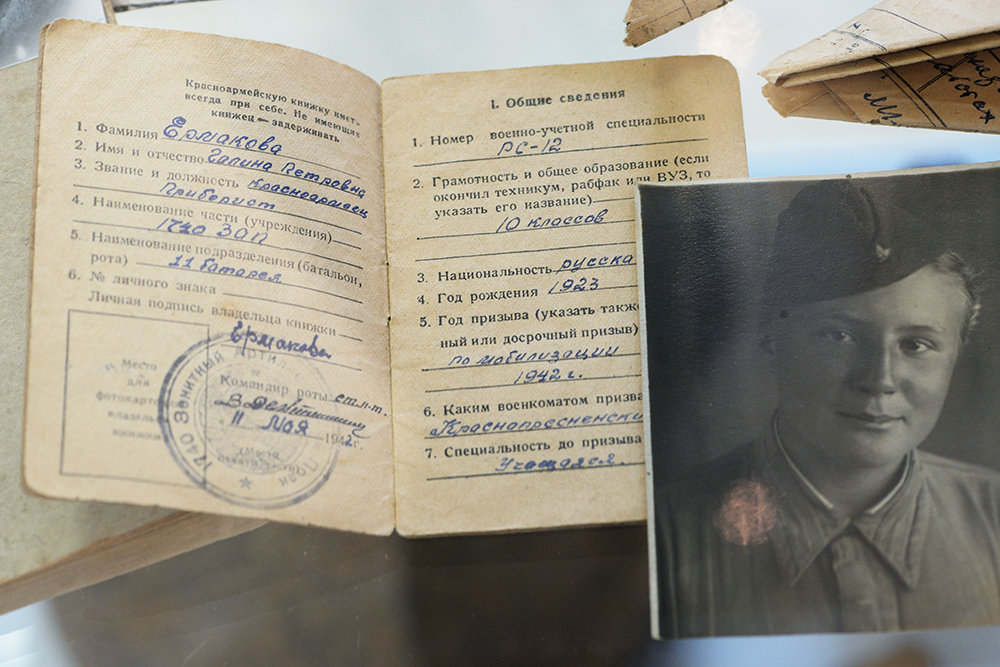 Красноармейскую книжку иметь
всегда при себе. Не имеющих
книжек — задерживать
1. Фамилия Ермакова
2. Имя и отчество Галина Петровна
3. Звание и должность Красноармеец
Приборист
4. Наименование части (учреждения)
1740 ЗАП
5. Наименование подразделения (батальон,
рота) 11 батарея
6. № личного знака
Личная подпись владельца книжки
Ермакова
Место
для
фотокарточки
владельца
книжки
Командир роты ст. л-т.
11 Мая 1942 г.
1740 Зенитный Арти
Полк
I. Общие сведения
1. Номер военно-учетной специальности
РС-12
2. Грамотность и общее образование (если
окончил техникум, рабфак или ВУЗ, то
указать его название)
10 классов
3. Национальность русска
4. Год рождения 1923
5. Год призыва (указать также
ный или досрочный призыв)
по мобилизации
1942 г.
6. Каким военкоматом призва
Краснопресненски
7. Специальность до призыва
Учащаяся.